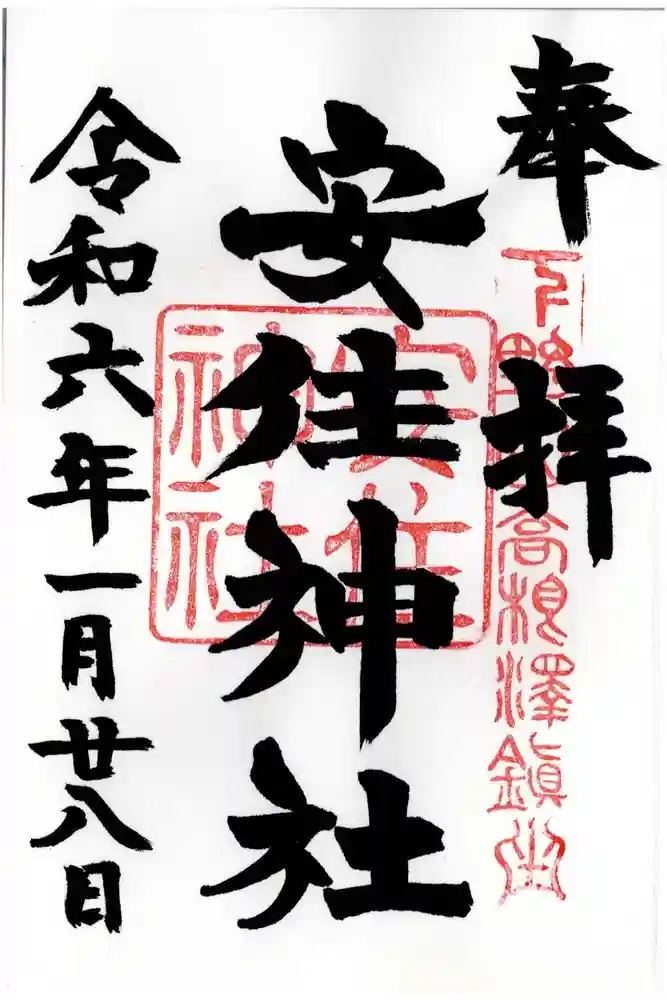 奉拝
下野
高根澤鎮坐
安住神社
安住神社
令和六年一月廿八日